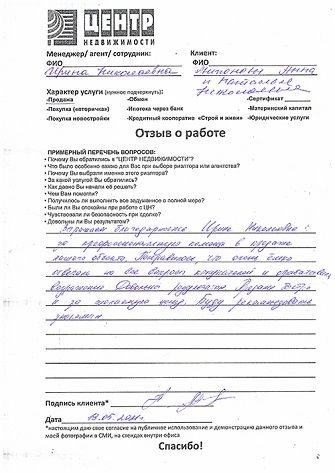 ЦЕНТР
НЕДВИЖИМОСТИ
Менеджер/ агент/ сотрудник: Клиент:
ФИО Ирина Николаевна ФИО Антоновы Анна
и Наталья
Николаевна
Характер услуги (нужное подчеркнуть):
-Продажа -Обмен -Сертификат
-Покупка (вторичка) -Ипотека через банк -Материнский капитал
-Покупка новостройки -Кредитный кооператив «Строй и живи» -Юридические услуги
Отзыв о работе
ПРИМЕРНЫЙ ПЕРЕЧЕНЬ ВОПРОСОВ:
• Почему Вы обратились в "ЦЕНТР НЕДВИЖИМОСТИ"?
• Что было особенно важно для Вас при выборе риэлтора или агентства?
• Почему Вы выбрали именно этого риэлтора?
• За какой услугой Вы обратились?
• Как давно Вы начали её решать?
• Чем Вам помогли?
• Получилось ли выполнить все задуманное в полной мере?
• Были ли Вы спокойны при работе с ЦН?
• Чувствовали ли безопасность при сделке?
• Довольны ли Вы результатом?
Выражаем благодарность Ирине Николаевне
за профессиональную помощь в продаже
нашего объекта. Понравилось, что очень
ответила на все вопросы
Довольны результатом
и за желаемую цену. Буду рекомендовать
знакомым
Подпись клиента*
Дата 19.05.
*настоящим даю свое согласие на публичное использование и демонстрацию данного отзыва и
моей фотографии в СМИ, на стендах внутри офиса
Спасибо!